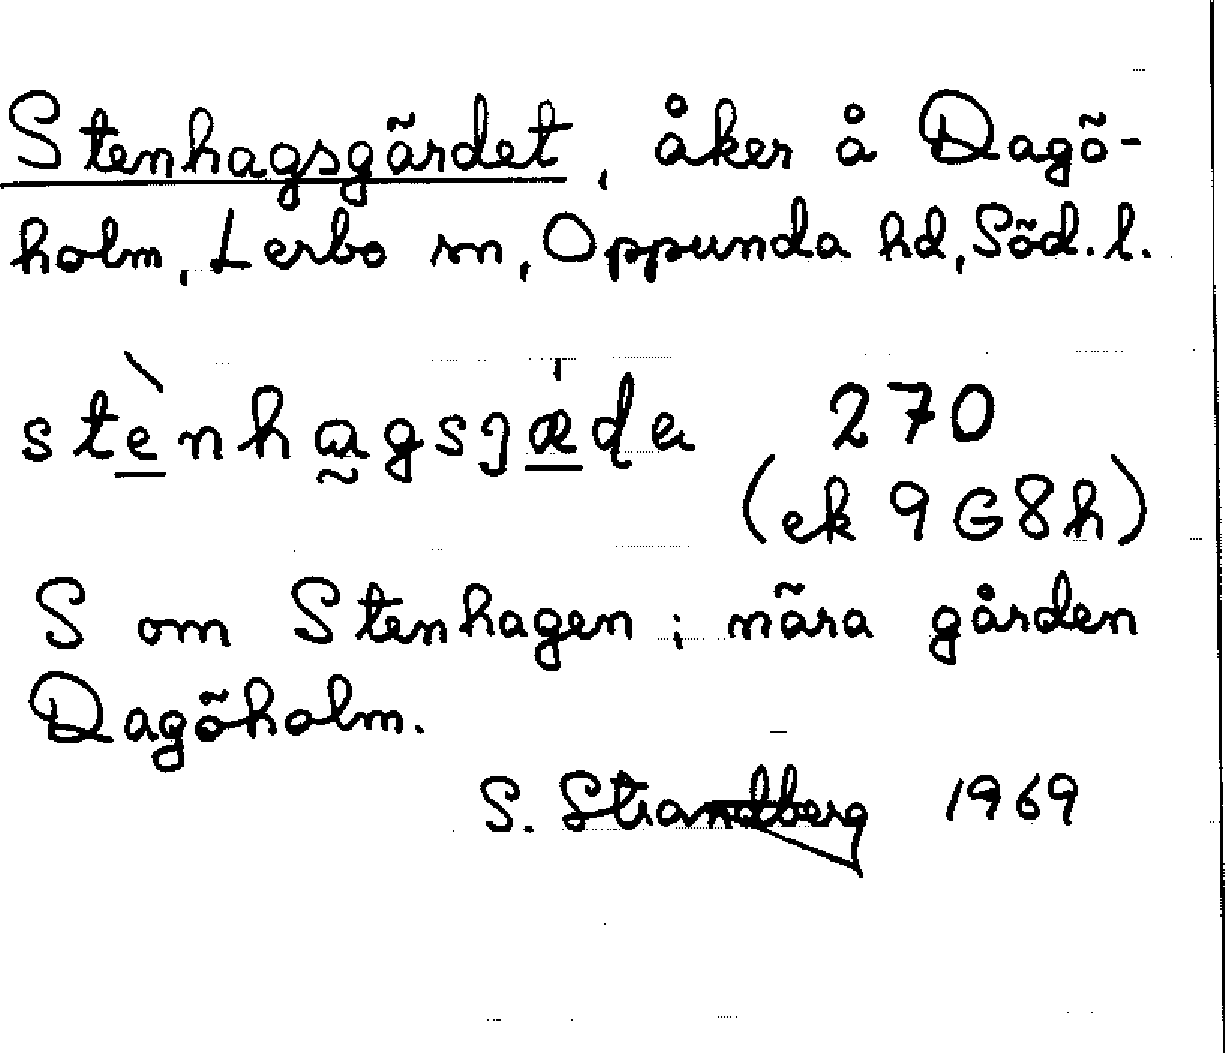 Stenhagsgärdet, åker å Dagö-
holm, Lerbo sn, Oppunda hd, Söd. l.
stènhagsjæ̇da 270
(ek 9G8h)
S om Stenhagen; nära gården
Dagöholm.
S. Strandberg 1969